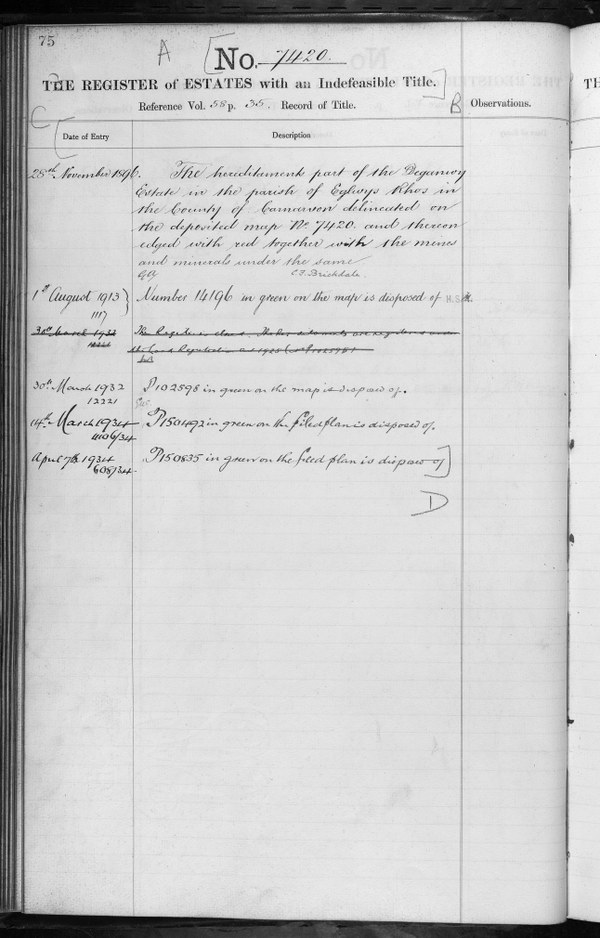 75
A
No. 7420.
THE REGISTER of ESTATES with an Indefeasible Title.
Reference Vol. 58 p. 35. Record of Title.
B
Observations.
C
Date of Entry
Description
28th November 1896.
The hereditaments part of the Deganwy
Estate in the parish of Eglwys Rhos in
the County of Carnarvon delineated on
the deposited map No. 7420. and thereon
edged with red together with the mines
and minerals under the same
C.F. Brickdale.
1st August 1913
1117
Number 14196 in green on the map is disposed of
30th March 1932
30th March 1932
12221
P102598 in green on the map is disposed of.
14th March 1934
41106/34
P150492 in green on the filed plan is disposed of.
April 7th 1934
608/34
P150835 in green on the filed plan is disposed of
D